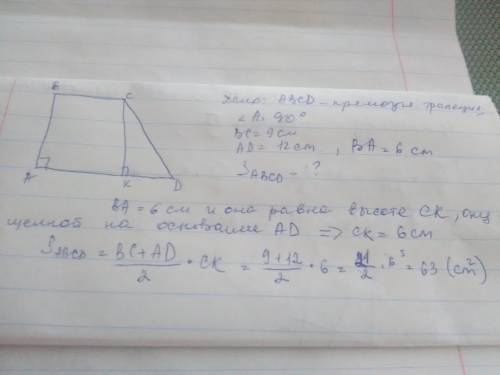 B C
Дано: ABCD - прямоуг. трапеция,
∠A = 90°
BC = 9 см
AD = 12 см, BA = 6 см
S ABCD - ?
A K D
BA = 6 см и она равна высоте CK, опу
щенной на основание AD ⇒ CK = 6 см
S ABCD = (BC + AD)/2 · CK = (9 + 12)/2 · 6 = 21/2 · 6³ = 63 (см²)